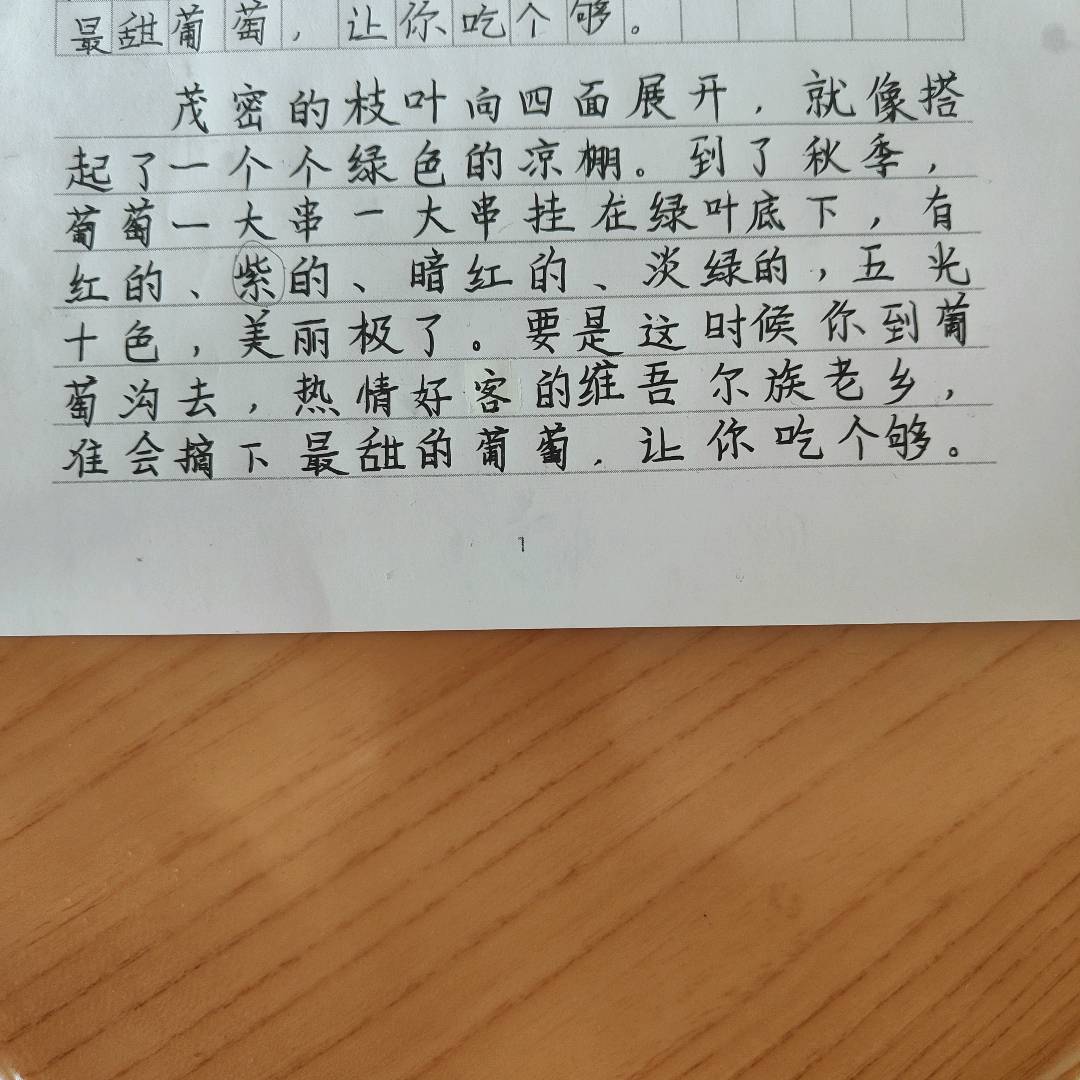 最甜葡萄，让你吃个够。
茂密的枝叶向四面展开，就像搭
起了一个个绿色的凉棚。到了秋季，
葡萄一大串一大串挂在绿叶底下，有
红的、紫的、暗红的、淡绿的，五光
十色，美丽极了。要是这时候你到葡
萄沟去，热情好客的维吾尔族老乡，
准会摘下最甜的葡萄，让你吃个够。
1